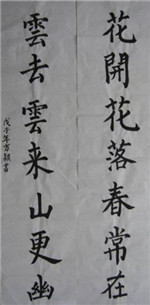 花開花落春常在
雲去雲来山更幽
戊子年方穎書